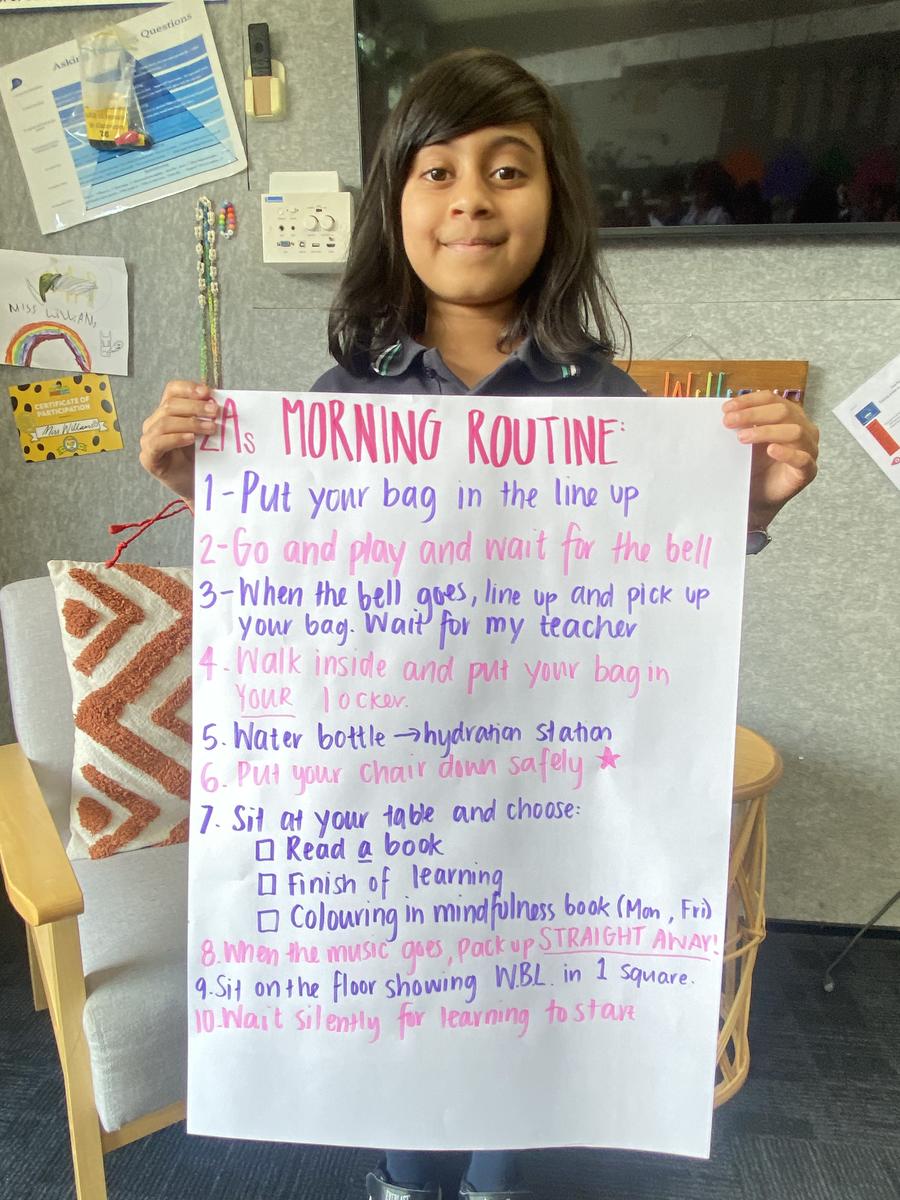 Asking Questions
MISS WILLIAMS
CERTIFICATE OF
PARTICIPATION
Miss Williams
2As MORNING ROUTINE:
1-Put your bag in the line up
2-Go and play and wait for the bell
3-When the bell goes, line up and pick up
your bag. Wait for my teacher
4. Walk inside and put your bag in
YOUR locker.
5. Water bottle → hydration station
6. Put your chair down safely ★
7. Sit at your table and choose:
☐ Read a book
☐ Finish of learning
☐ Colouring in mindfulness book (Mon, Fri)
8. When the music goes, pack up STRAIGHT AWAY!
9. Sit on the floor showing W.B.L. in 1 square.
10. Wait silently for learning to start